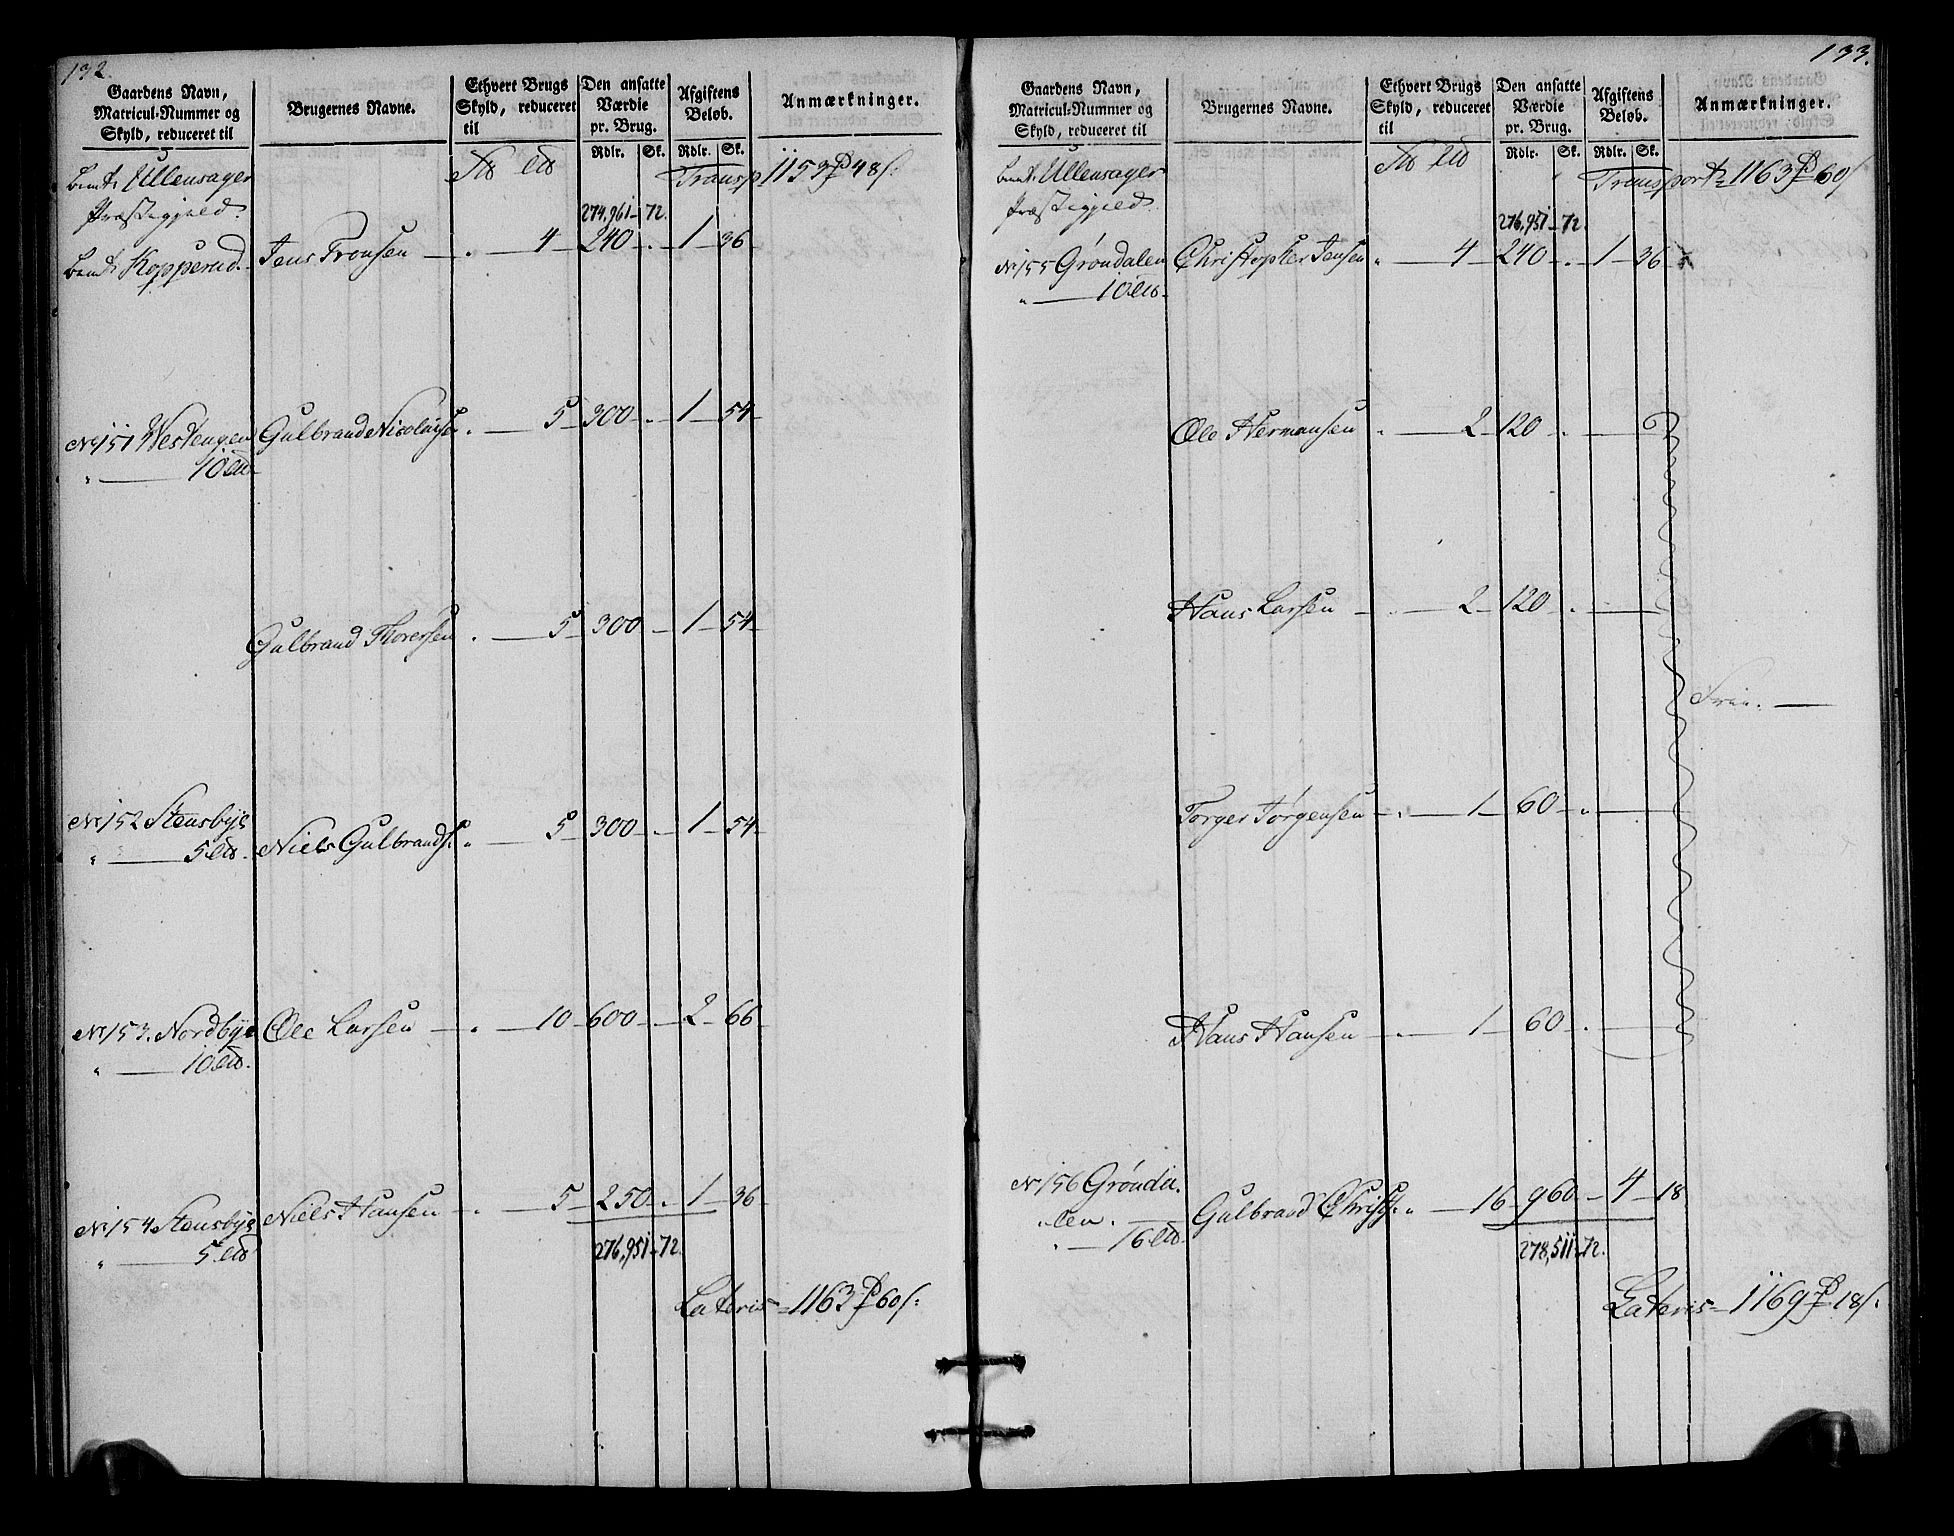 132.
Gaardens Navn, Matricul-Nummer og Skyld, reduceret til | Brugernes Navne. | Ethvert Brugs Skyld, reduceret til | Den ansatte Værdie pr. Brug. | Afgiftens Beløb. | Anmærkninger.
Rdlr. Sk. Rdlr. Sk.
Ullensager Transp 1153 48
Præstegjeld. 274,961 - 72.
Kopperud. Jens Tronsen 4 240 1 36
No 151 Westengen Gulbrand Nicolaisen 5 300 1 54
10
Gulbrand Thoresen 5 300 1 54
No 152 Stensbye
5 Niels Gulbrands: 5 300 1 54
No 153. Nordbye Ole Larsen 10 600 2 66
10
No 154 Stensbye Niels Hansen 5 250 1 36
5 276,951 - 72.
Lateris 1163 60
133.
Gaardens Navn, Matricul-Nummer og Skyld, reduceret til | Brugernes Navne. | Ethvert Brugs Skyld, reduceret til | Den ansatte Værdie pr. Brug. | Afgiftens Beløb. | Anmærkninger.
Rdlr. Sk. Rdlr. Sk.
Ullensager Transport 1163 60
Præstegjeld. 276,951 - 72.
No 155 Grøndalen Christopher Jensen 4 240 1 36
10
Ole Hermansen 2 120
Hans Larsen 2 120
Frie.
Torger Jørgensen 1 60
Hans Hansen 1 60
No 156 Grønda
len. Gulbrand Christ: 16 960 4 18
16 278,511 - 72.
Lateris 1169 18